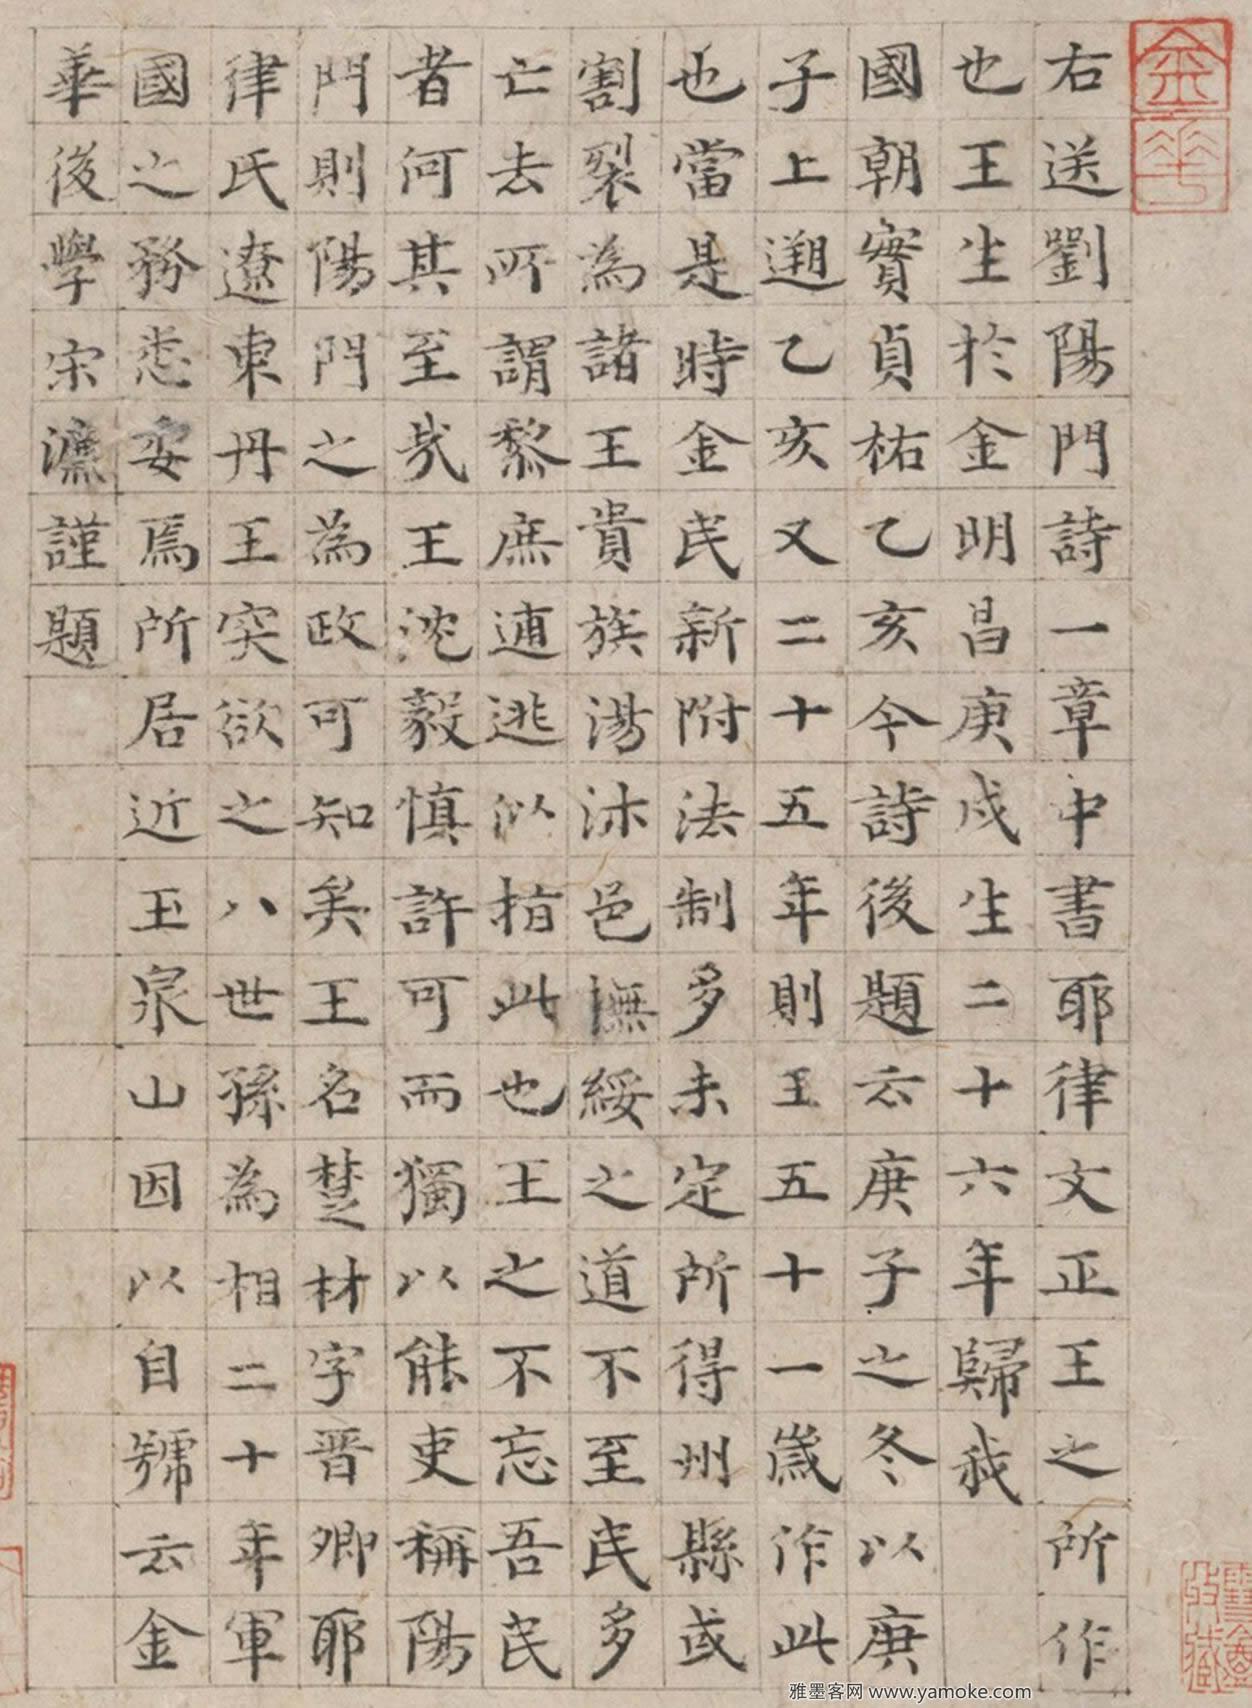 金華
右送劉陽門詩一章中書耶律文正王之所作
也王生於金明昌庚戌生二十六年歸我
國朝實貞祐乙亥今詩後題云庚子之冬以庚
子上遡乙亥又二十五年則王五十一歲作此
也當是時金民新附法制多未定所得州縣或
割裂為諸王貴族湯沐邑撫綏之道不至民多
亡去所謂黎庶逋逃以指此也王之不忘吾民
者何其至哉王沈毅慎許可而獨以能吏稱陽
門則陽門之為政可知矣王名楚材字晉卿耶
律氏遼東丹王突欲之八世孫為相二十年軍
國之務悉安焉所居近玉泉山因以自號云金
華後學宋濂謹題
雅墨客网 www.yamoke.com